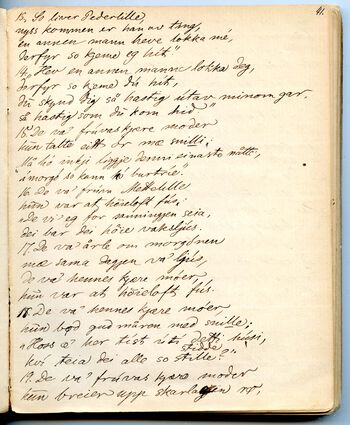 41.
13. So liver Pederlille,
nyss kommen er han av ting,
En annen mann heve lokka mé,
Darfyr so kjeme eg hit."
14. Hev en annen mann lokka deg,
Darfyr so kjeme du hit,
Du skynd dig so hastig út av minom gar
so hastig som du kom hid."
15. De va' frúvas kjære moder
hun talte eitt or mæ snilli:
Må hó inkje liggje denne einaste nåtti,
imorgó so kann burtrie."
16. De va' frúva Mettelille
hun var at höieloft fús;
De vi eg for sanningjen seia,
dei bar dei höie vaksljús.
17. De va' årle om morgónen
mæ sama degjen va' ljús,
de va' hennes kjære móer,
hun var at höieloft fús.
18. De va' hennes kjære móer,
hun bød gud måren mad snille;
Hoss æ' her tist uti detti húsi,
tidde
kvi teia dei alle so stille?
19. De va' frúvas kjære moder
hun breier upp skarlagen rø,